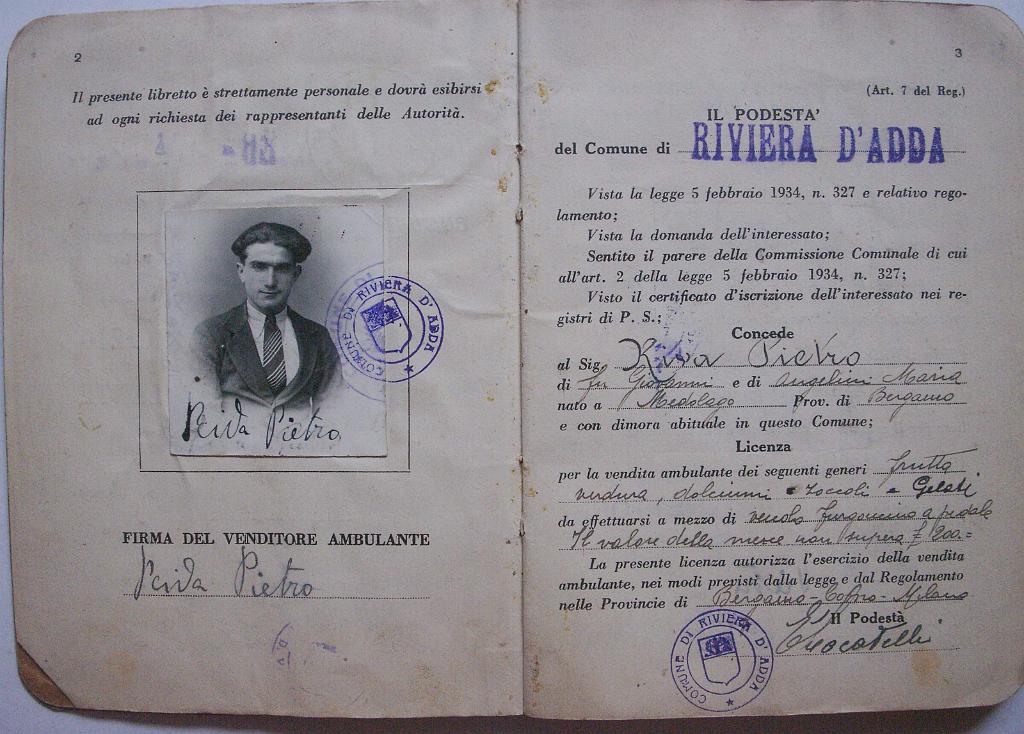 2
Il presente libretto è strettamente personale e dovrà esibirsi
ad ogni richiesta dei rappresentanti delle Autorità.
COMUNE DI RIVIERA D'ADDA
Pietro
FIRMA DEL VENDITORE AMBULANTE
Pietro
3
(Art. 7 del Reg.)
IL PODESTA'
del Comune di RIVIERA D'ADDA
Vista la legge 5 febbraio 1934, n. 327 e relativo rego-
lamento;
Vista la domanda dell'interessato;
Sentito il parere della Commissione Comunale di cui
all'art. 2 della legge 5 febbraio 1934, n. 327;
Visto il certificato d'iscrizione dell'interessato nei re-
gistri di P. S.;
Concede
al Sig. Pietro
di fu Giovanni e di Angelini Maria
nato a Medolago Prov. di Bergamo
e con dimora abituale in questo Comune;
Licenza
per la vendita ambulante dei seguenti generi frutta
verdura, dolciumi e zoccoli e Gelati
da effettuarsi a mezzo di furgoncino a pedale
Il valore della merce non supera
La presente licenza autorizza l'esercizio della vendita
ambulante, nei modi previsti dalla legge e dal Regolamento
nelle Provincie di Bergamo - Como - Milano
Il Podestà
COMUNE DI RIVIERA D'ADDA